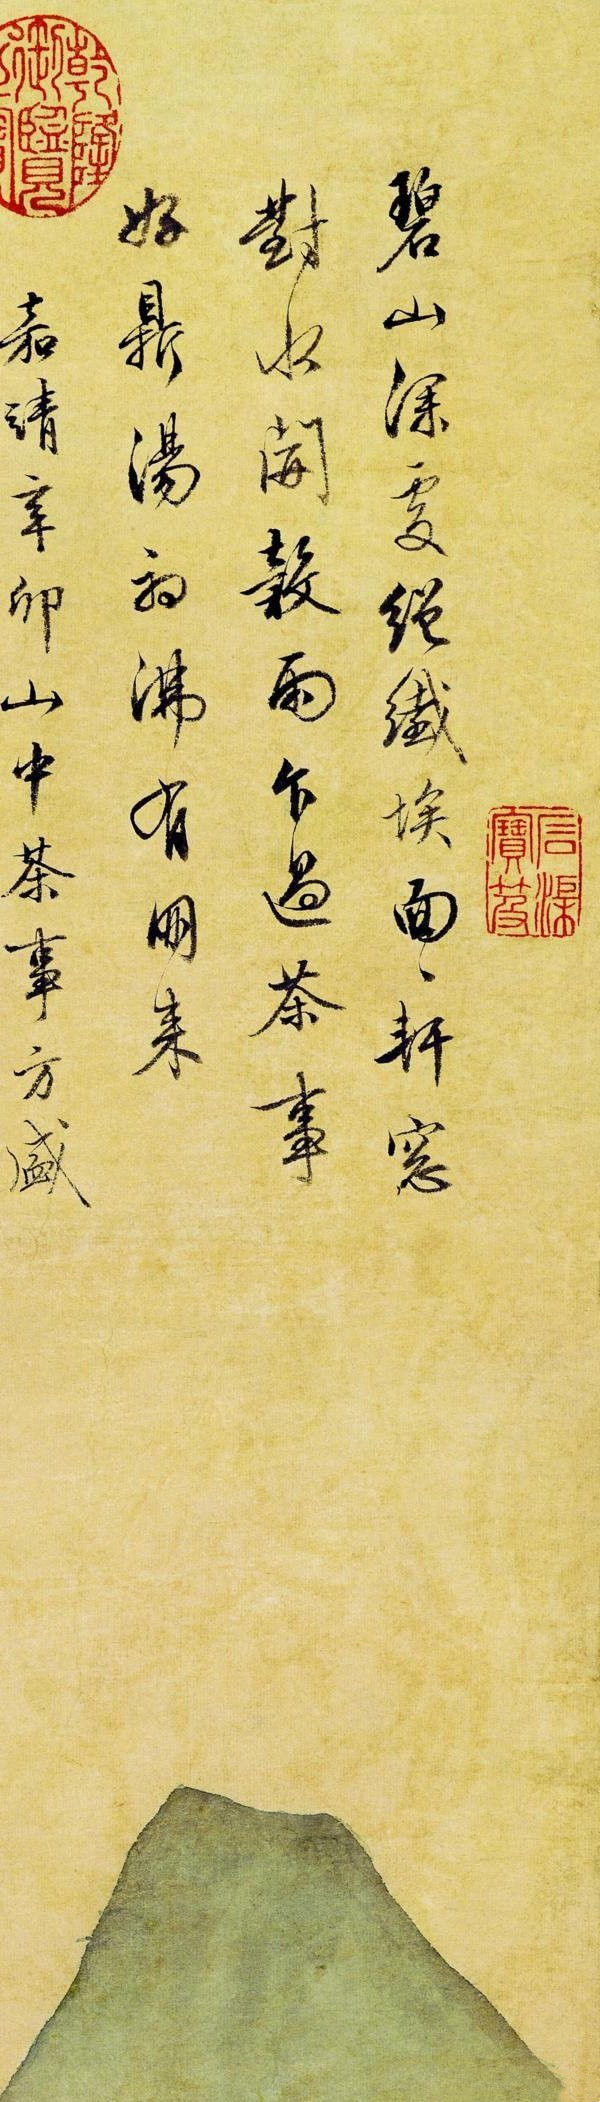 石渠寶笈
碧山深處絕纖埃面〻軒窓
對水開穀雨乍過茶事
好鼎湯初沸有朋来
乾隆御覽
嘉靖辛卯山中茶事方盛